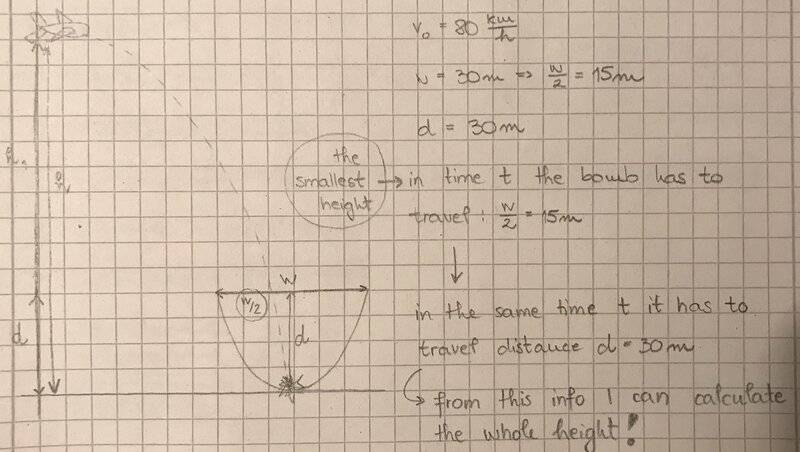 v₀ = 80 km/h
w = 30m ⇒ w/2 = 15m
d = 30m
the
smallest
height
→ in time t the bomb has to
travel: w/2 = 15m
in the same time t it has to
travel distance d = 30m
from this info I can calculate
the whole height!
w
w/2
d
d